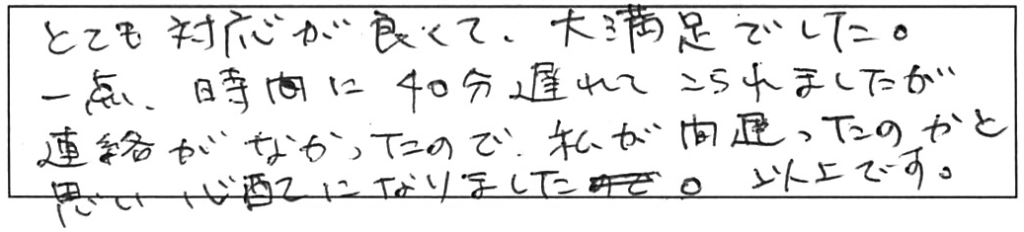 とても対応が良くて、大満足でした。
一点、時間に40分遅れてこられましたが
連絡がなかったので、私が間違ったのかと
思い心配になりました。以上です。